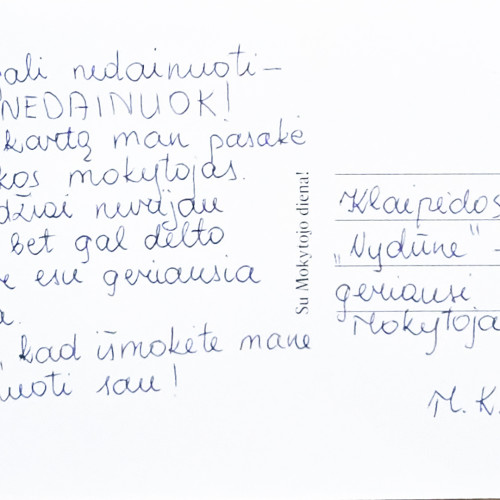 gali nedainuoti–
NEDAINUOK!
kartą man pasakė
kos mokytojas.
džiai nurijau
bet gal dėlto
esu geriausia
a.
, kad išmokėte mane
nuoti sau!
Su Mokytojo diena!
Klaipėdos
„Vydūno" –
geriausi
Mokytoja
M. K.